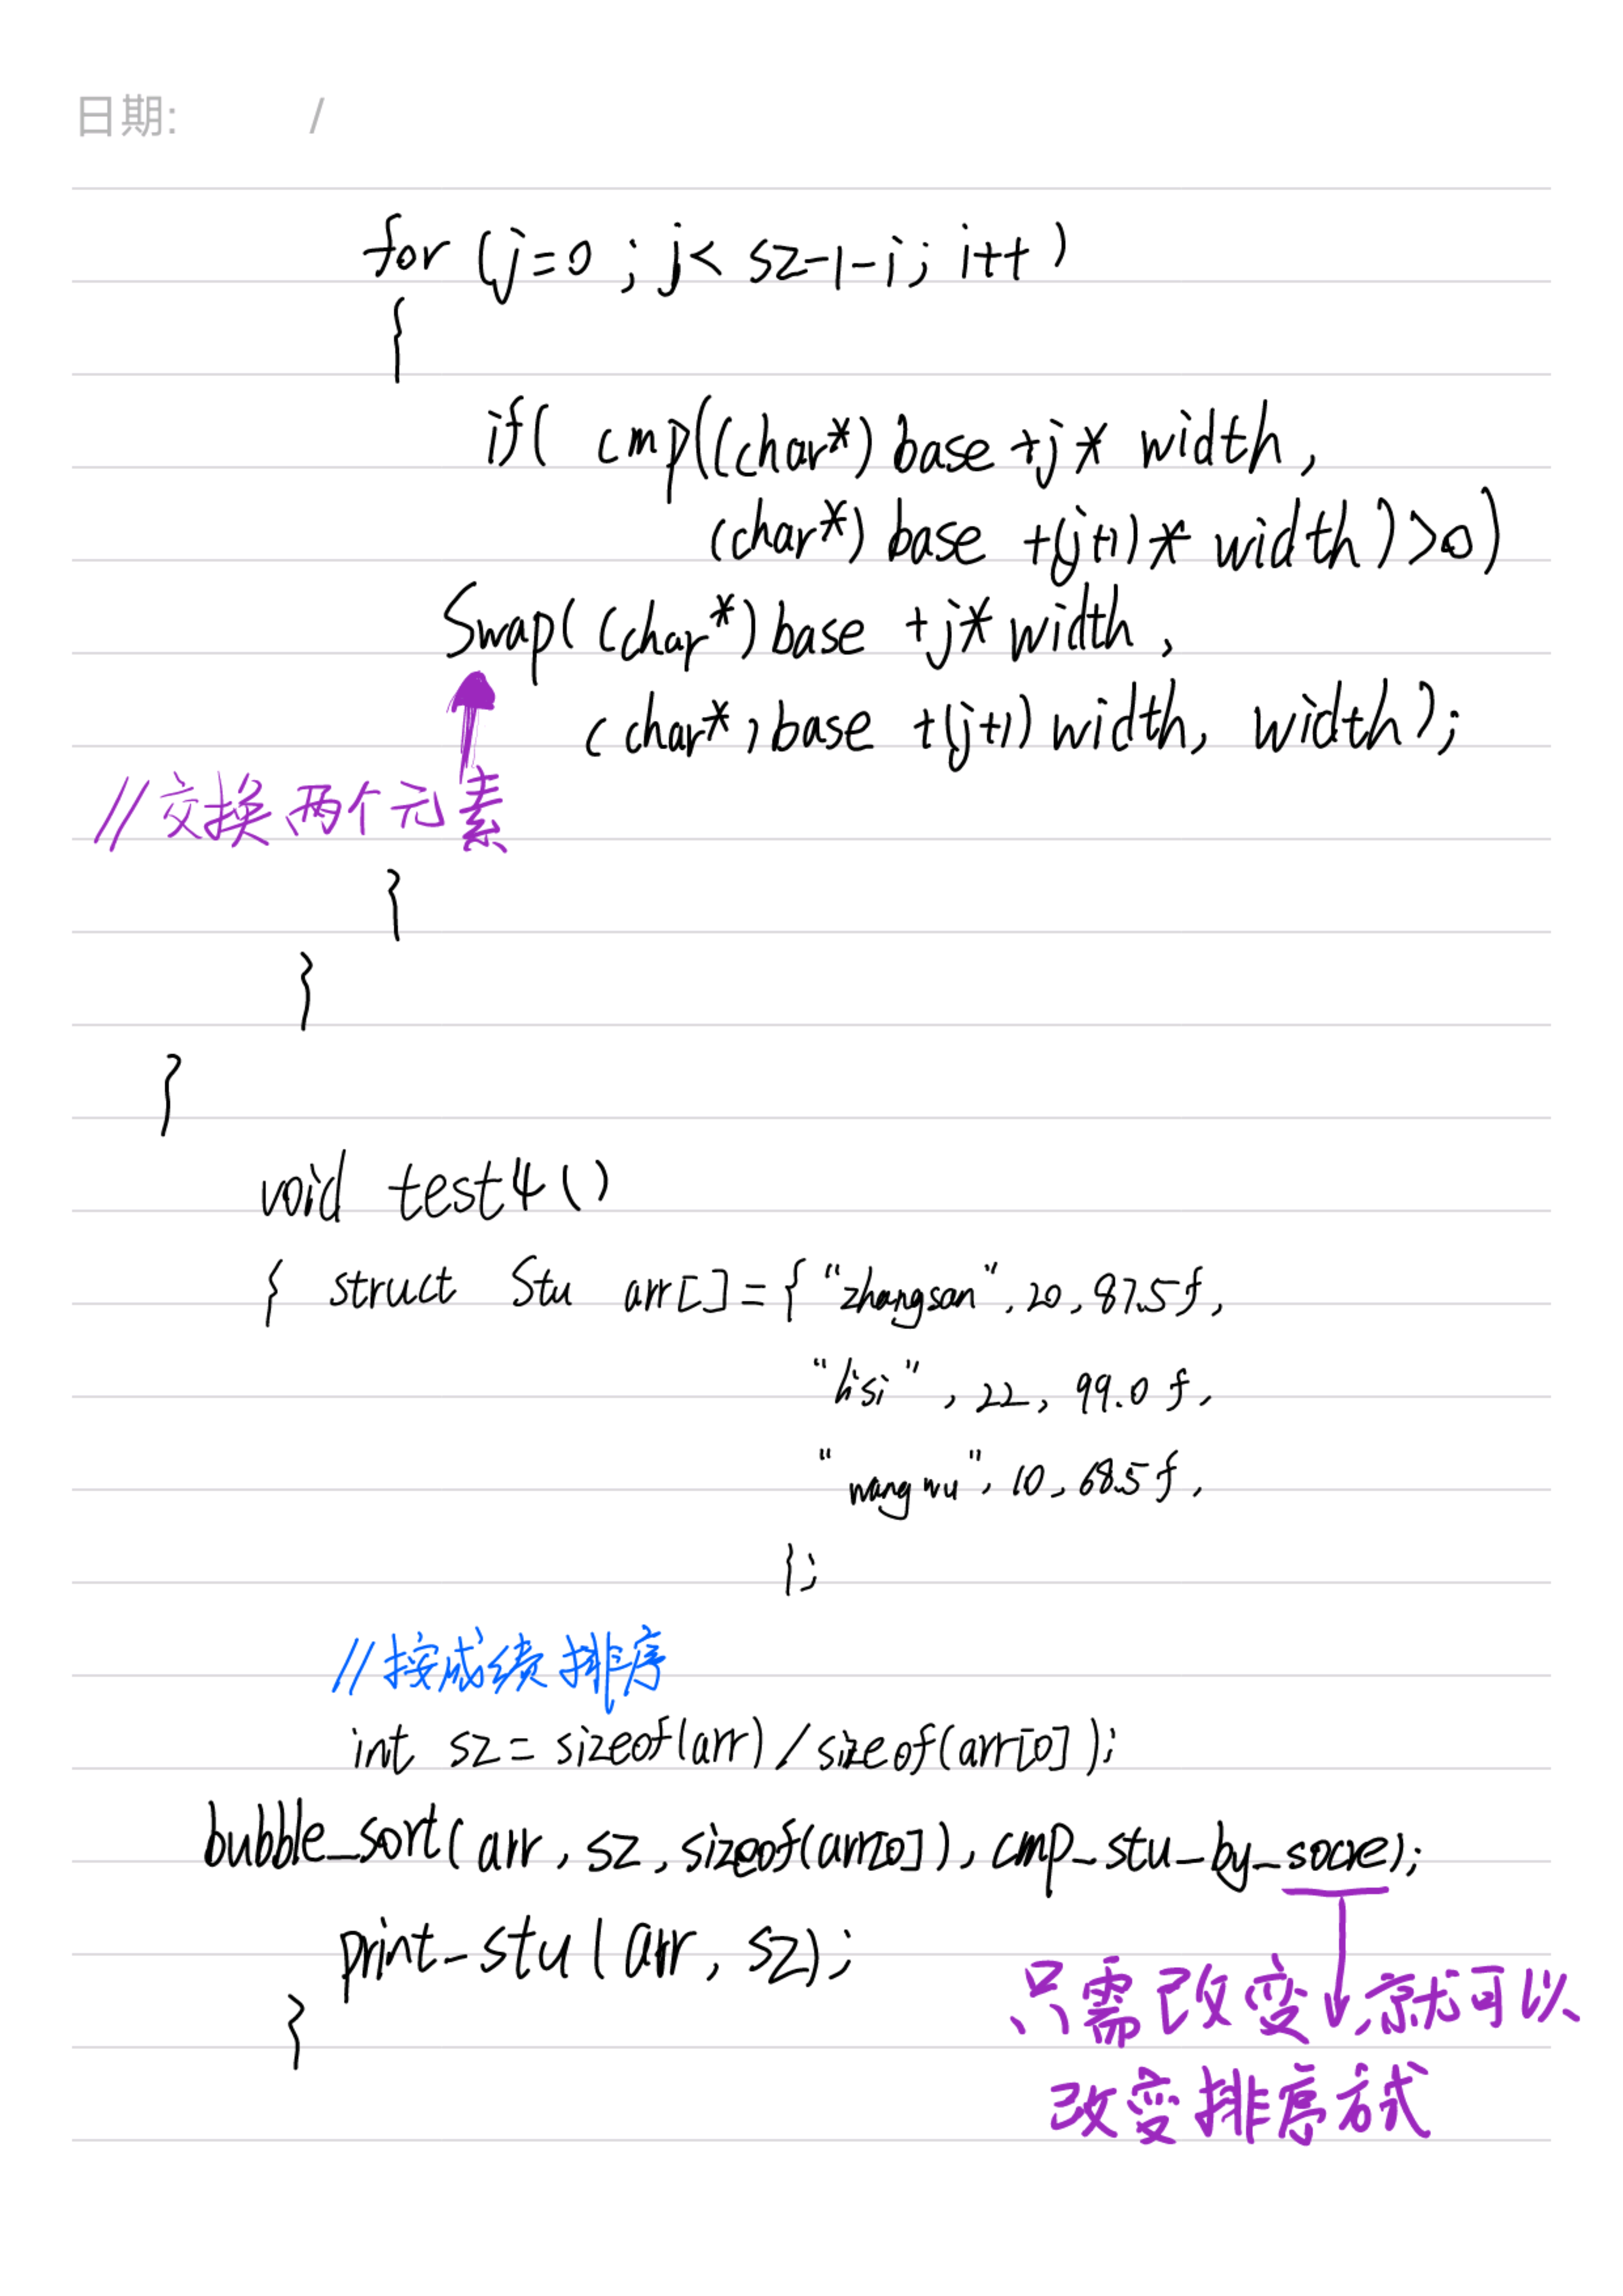 日期: /
for (j=0 ; j< sz-1-i; i++)
{
if( cmp((char*) base +j* width,
(char*) base +(j+1)* width)>0)
Swap((char*)base +j* width,
(char*)base +(j+1) width, width);
//交换两个元素
}
}
}
void test4()
{ struct Stu arr[]={"zhangsan",20,87.5f,
"lisi",22,99.0f,
"wangwu",10,68.5f,
};
//按成绩排序
int sz=sizeof(arr)/sizeof(arr[0]);
bubble_sort(arr,sz,sizeof(arr[0]),cmp_stu_by_socre);
print_stu(arr,sz);
只需改变↓,就可以
}
改变排序方式